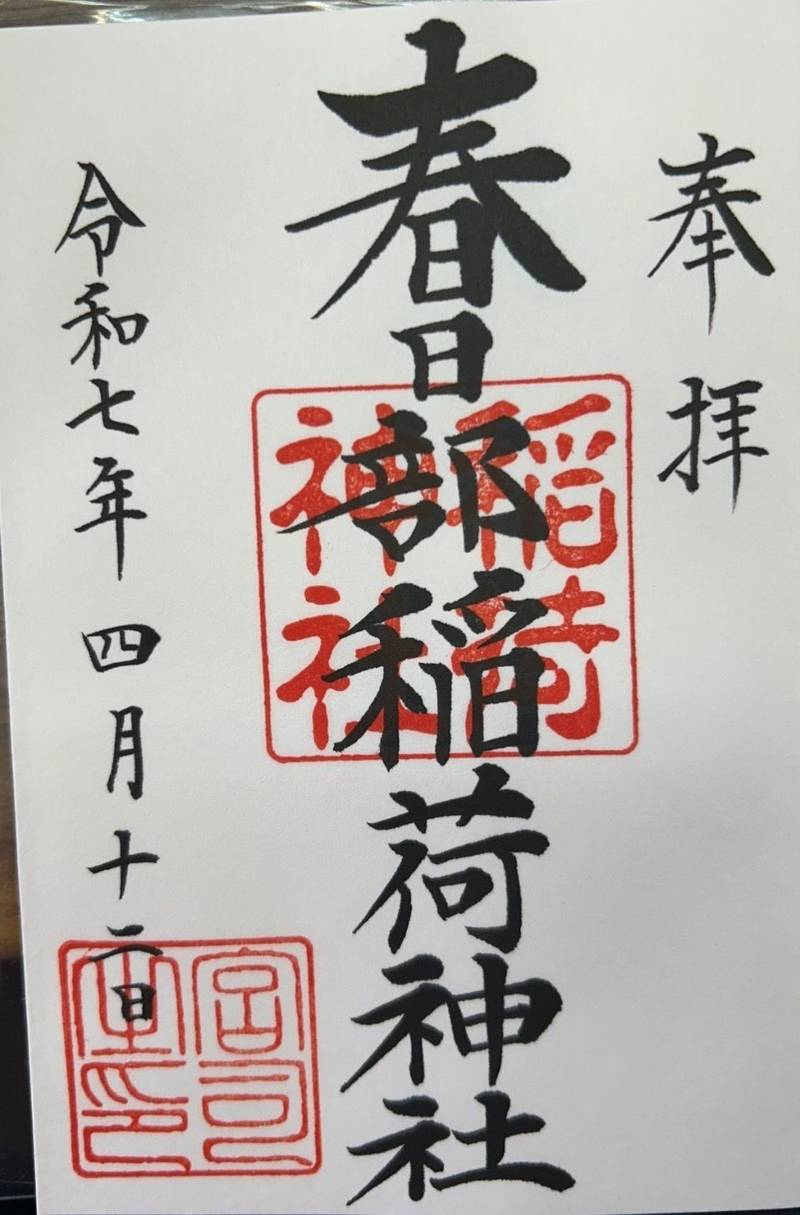 奉拝
春日部稲荷神社
稲荷神社
令和七年四月十二日
宮司之印